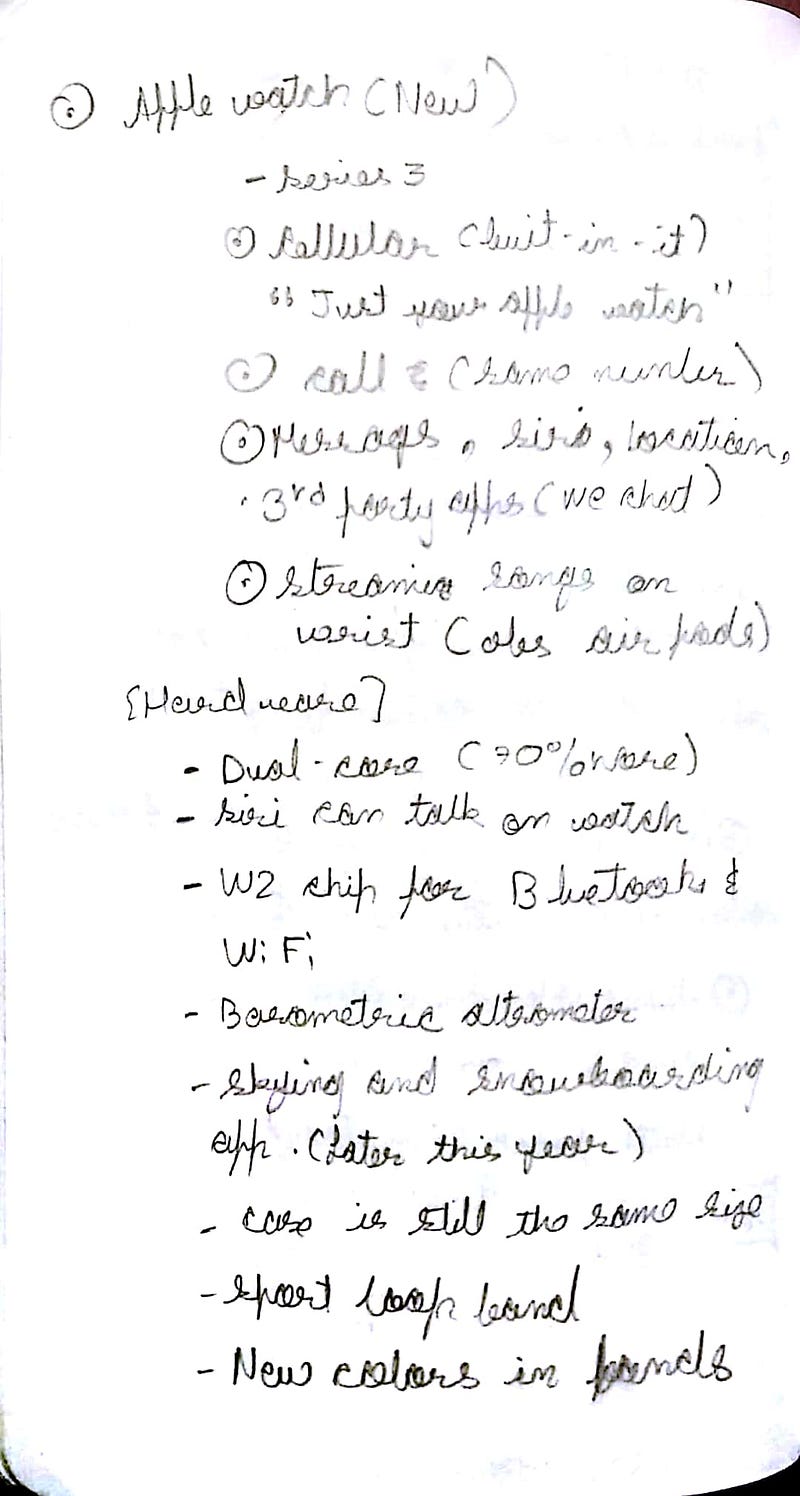 ⊙ Apple watch (New)
- series 3
⊙ Cellular (buit-in-it)
"Just your apple watch"
⊙ call & (same number)
⊙ Messages, siri, location,
· 3rd party apps (we chat)
⊙ streaming songs on
wrist ( airpods)
[Hardware]
- Dual-core (70% more)
- siri can talk on watch
- W2 chip for Bluetooth &
WiFi
- Barometric alterometer
- skying and snowboarding
app. (Later this year)
- case is still the same size
- sport loop band
- New colors in bands